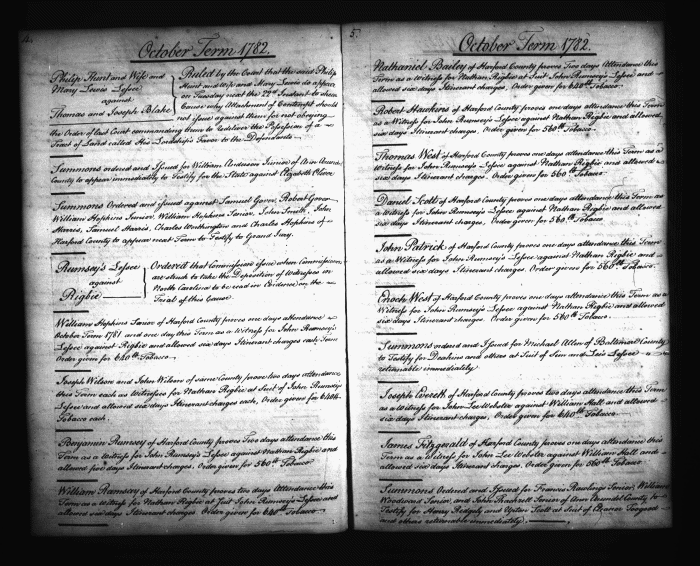 October Term 1782.
Philip Hunt and Wife and
Mary Lewis Lessee
against
Thomas and Joseph Blake
Ruled by the Court that the said Philip
Hunt and Wife and Mary Lewis do appear
on Tuesday next the 22nd Instant to shew
Cause why Attachment of Contempt should
not issue against them for not obeying
the Order of last Court commanding them to deliver the Possession of a
Tract of Land called His Lordship's Favor to the Defendants
Summons ordered and Issued for William Anderson Junior of Ann Arundel
County to appear immediately to Testify for the State against Elizabeth
Summons Ordered and issued against Samuel Gover, Robert Gover
William Hopkins Junior, William Hopkins Senior, John Smith, John
Harris, Samuel Harris, Charles Worthington and Charles Hopkins of
Harford County to appear next Term to Testify to Grand Jury.
Rumsey's Lessee
against
Rigbie
Ordered that Commission issue when Commission
are struck to take the Deposition of Witnesses in
North Carolina to be read in Evidence on the
Trial of this Cause
William Hopkins Senior of Harford County proves one days attendance
October Term 1781 and one day this Term as a Witness for John Rumsey's
Lessee against Rigbie and allowed six days Itinerant charges each Term
Order given for 640 lb Tobacco
Joseph Wilson and John Wilson of same County prove two days attendance
this Term each as Witnesses for Nathan Rigbie at Suit of John Rumsey's
Lessee and allowed six days Itinerant charges each, Order given for 640 lb
Tobacco each.
Benjamin Rumsey of Harford County proves Two days Attendance this
Term as a Witness for John Rumsey's Lessee against Nathan Rigbie and
allowed five days Itinerant charges. Order given for 560 lb Tobacco
William Ramsay of Harford County proves two days Attendance this
Term as a Witness for Nathan Rigbie at Suit John Rumsey's Lessee and
allowed six days Itinerant charges. Order given for 640 lb Tobacco
5.
October Term 1782.
Nathaniel Bailey of Harford County proves Two days Attendance this
Term as a Witness for Nathan Rigbie at Suit John Rumsey's Lessee and
allowed six days Itinerant Charges, Order given for 640 lb Tobacco
Robert Hawkins of Harford County proves one days attendance this Term
as a Witness for John Rumsey's Lessee against Nathan Rigbie and allowed
six days Itinerant charges. Order given for 560 lb Tobacco.
Thomas West of Harford County proves one days attendance this Term as a
Witness for John Rumsey's Lessee against Nathan Rigbie and allowed
six days Itinerant charges. Order given for 560 lb Tobacco.
Daniel Scott of Harford County proves one days attendance this Term as
a Witness for John Rumsey's Lessee against Nathan Rigbie and allowed
six days Itinerant Charges, Order given for 560 lb Tobacco
John Patrick of Harford County proves one days attendance this Term
as a Witness for John Rumsey's Lessee against Nathan Rigbie and
allowed six days Itinerant charges. Order given for 560 lb Tobacco.
Enoch West of Harford County proves one days attendance this Term as a
Witness for John Rumsey's Lessee against Nathan Rigbie and allowed
six days Itinerant charges. Order given for 560 lb Tobacco.
Summons ordered and Issued for Michael Allen of Baltimore County
to Testify for Deakins and others at Suit of Sim and Lee's Lessee
returnable immediately
Joseph Everett of Harford County proves two days attendance this Term
as a Witness for John Lee Webster against William Hall and allowed
six days Itinerant charges, Order given for 640 lb Tobacco
James Fitzgerald of Harford County proves one days attendance this
Term as a Witness for John Lee Webster against William Hall and
allowed six days Itinerant charges, Order given for 560 lb Tobacco
Summons Ordered and Issued for Francis Rawlings Senior, William
Woodward Senior, and John Senior of Ann Arundel County to
Testify for Henry Ridgely and Upton Scott at Suit of Eleanor
and others returnable immediately.